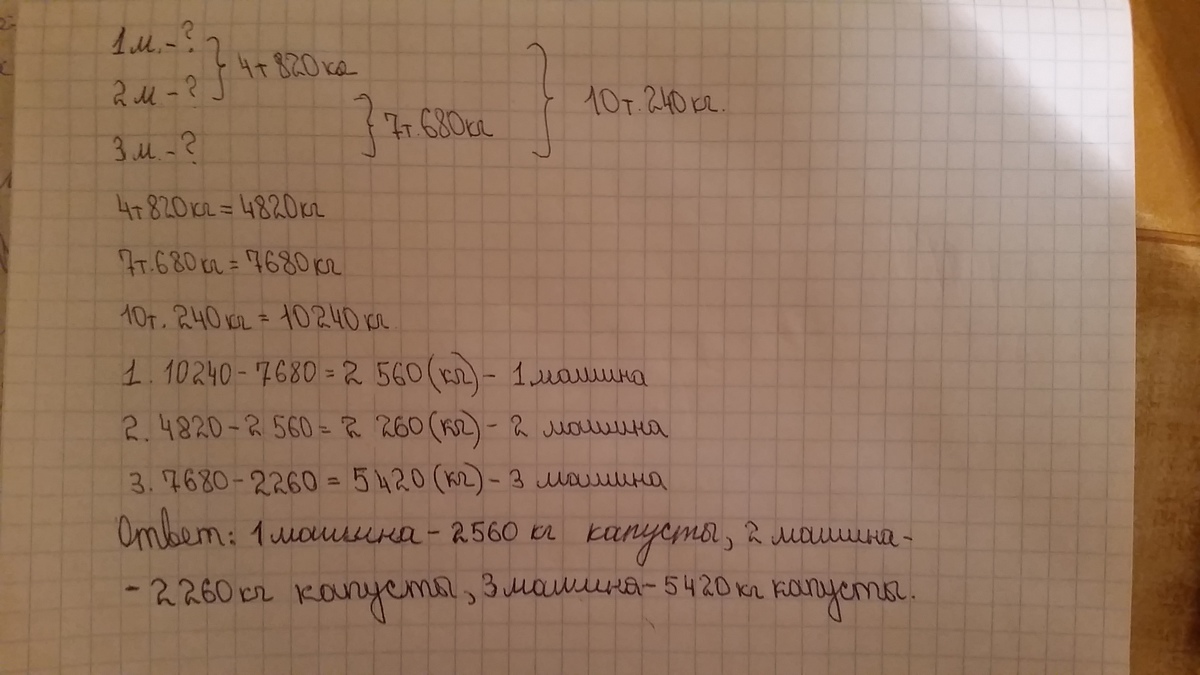 1 м. - ? } 4т 820 кг
2 м - ? } 7т. 680 кг } 10 т. 240 кг.
3 м. - ?
4т 820 кг = 4820 кг
7т. 680 кг = 7680 кг
10т. 240 кг = 10 240 кг
1. 10240 - 7680 = 2 560 (кг) - 1 машина
2. 4820 - 2 560 = 2 260 (кг) - 2 машина
3. 7680 - 2260 = 5420 (кг) - 3 машина
Ответ: 1 машина - 2560 кг капусты, 2 машина -
- 2260 кг капусты, 3 машина - 5420 кг капусты.